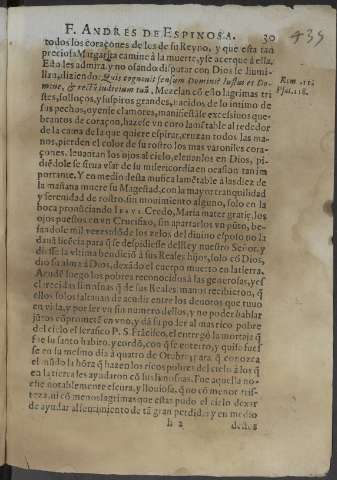 F. ANDRES DE ESPINOSA. 30
435
todos los coraçones de los de su Reyno, y que esta tan
preciosa Margarita camine à la muerte, y se acerque à ella.
Esto les admira, y no osando disputar con Dios se humi-
llan, diziendo: Quis cognouit sensum Domini? Iustus es Do-
mine, & rectũ iudicium tuũ, Mezclan cõ esto lagrimas tri
stes, sollozos, y suspiros grandes, nacidos de lo intimo de
sus pechos, oyense clamores, manifiestãse excessiuos que-
brantos de coraçon, hazese vn coro lamẽtable al rededor
de la cama de la que quiere espirar, cruzan todos las ma-
nos, pierden el color de su rostro los mas varoniles cora-
çones, leuantan los ojos al cielo, eleuanlos en Dios, pi-
diẽdole se sirua vsar de su misericordia en ocasion tan im
portante. Y en medio desta musica lamẽtable à las diez de
la mañana muere su Magestad, con la mayor tranquilidad
y serenidad de rostro, sin mouimiento alguno, solo en la
boca pronũciando IESVS. Credo, Maria mater gratiæ, los
ojos puestos en vn Crucifixo, sin apartarlos vn pũto, be-
sandole mil vezes
licẽcia para q̃ se despidiesse del Rey nuestro Señor, y
diesse la vltima bendiciõ à sus Reales hijos, solo cõ Dios,
dio su alma à Dios, dexãdo el cuerpo muerto en la tierra.
Acudẽ luego los pobres reconocidos à las
recebidas limosnas q̃ de sus Reales manos recibieron, q̃
ellos solos faltauan de acudir entre los deuotos que tuuo
en vida, y por ser vn sin numero dellos, y no poder hablar
jũtos cõprometẽ en vno, y dã su poder al mas rico pobre
del cielo el Serafico P. S. Frãcisco, el entregò la mortaja q̃
fue su santo habito, y cordõ, con q̃ se enterrò, y quiso fues
se en su mesmo dia à quatro de Otubre, para q̃ conozca
el mũdo la hõra q̃ hazen los ricos pobres del cielo à los q̃
en la tierra les ayudaron cõ sus limosnas. Fue aquella no-
che notablemente escura, y llouiosa, q̃ no cõ menor tris-
teza, ni cõ menos lagrimas que estas pudo el cielo dexar
de ayudar al sentimiento de tã gran perdida: y en medio
h 2 destos
Rom. 11.
Psal. 118.